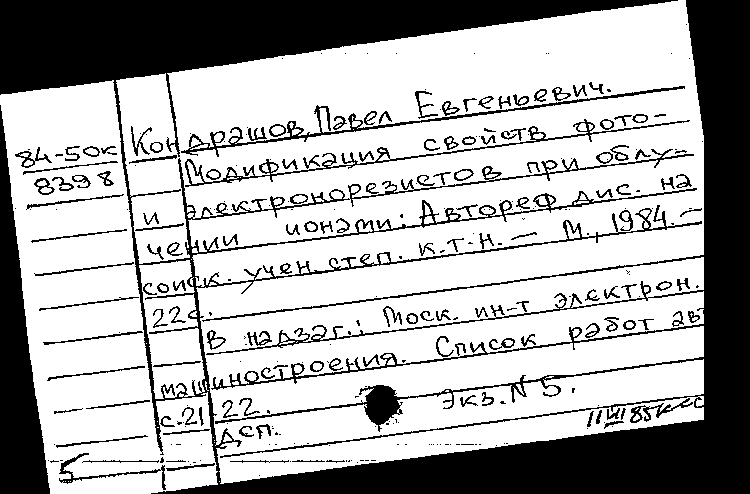 84-50к
8398
Кондрашов, Павел Евгеньевич.
Модификация свойств фото-
и электронорезистов при облу-
чении ионами: Автореф. дис. на
соиск. учен. степ. к.т.н. — М., 1984. —
22с.
В надзаг.: Моск. ин-т электрон.
машиностроения. Список работ ав
с. 21-22.
ДСП. Экз. N 5.
5